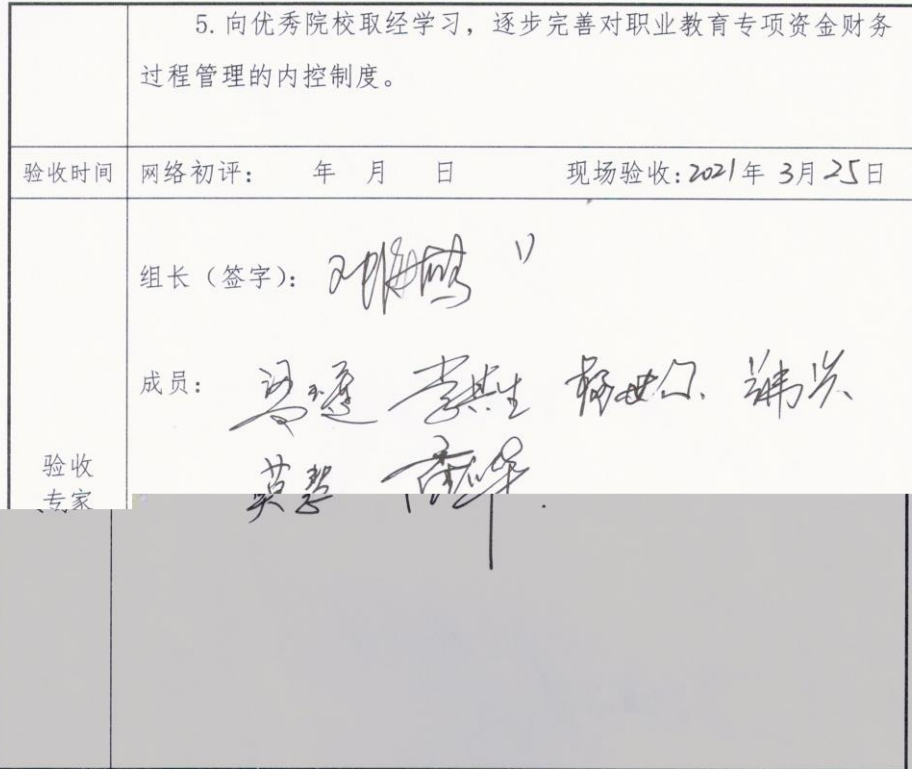 5.向优秀院校取经学习，逐步完善对职业教育专项资金财务
过程管理的内控制度。
验收时间 网络初评： 年 月 日 现场验收:2021年 3月25日
组长（签字）：
成员： 李共生
莫慧
验收
专家